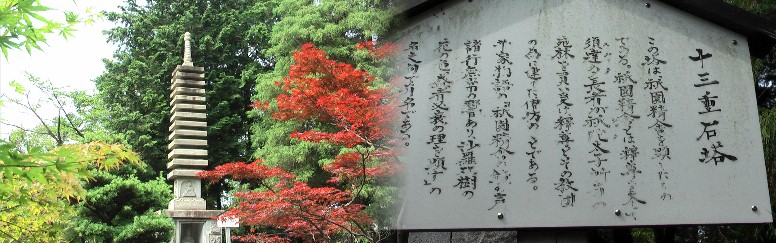 十三重石塔
この塔は祇園精舎を顕したもの
である。祇園精舎とは釋尊に帰依し
須達 長者が祇陀太子所有の
苑林を買い受け釋尊とその教団
の為に建てた僧坊のことである。
平家物語に祇園精舎の鐘の声
諸行無常の響あり沙羅双樹の
花の色盛者必衰の理を顕す」の
名文句で有名である。